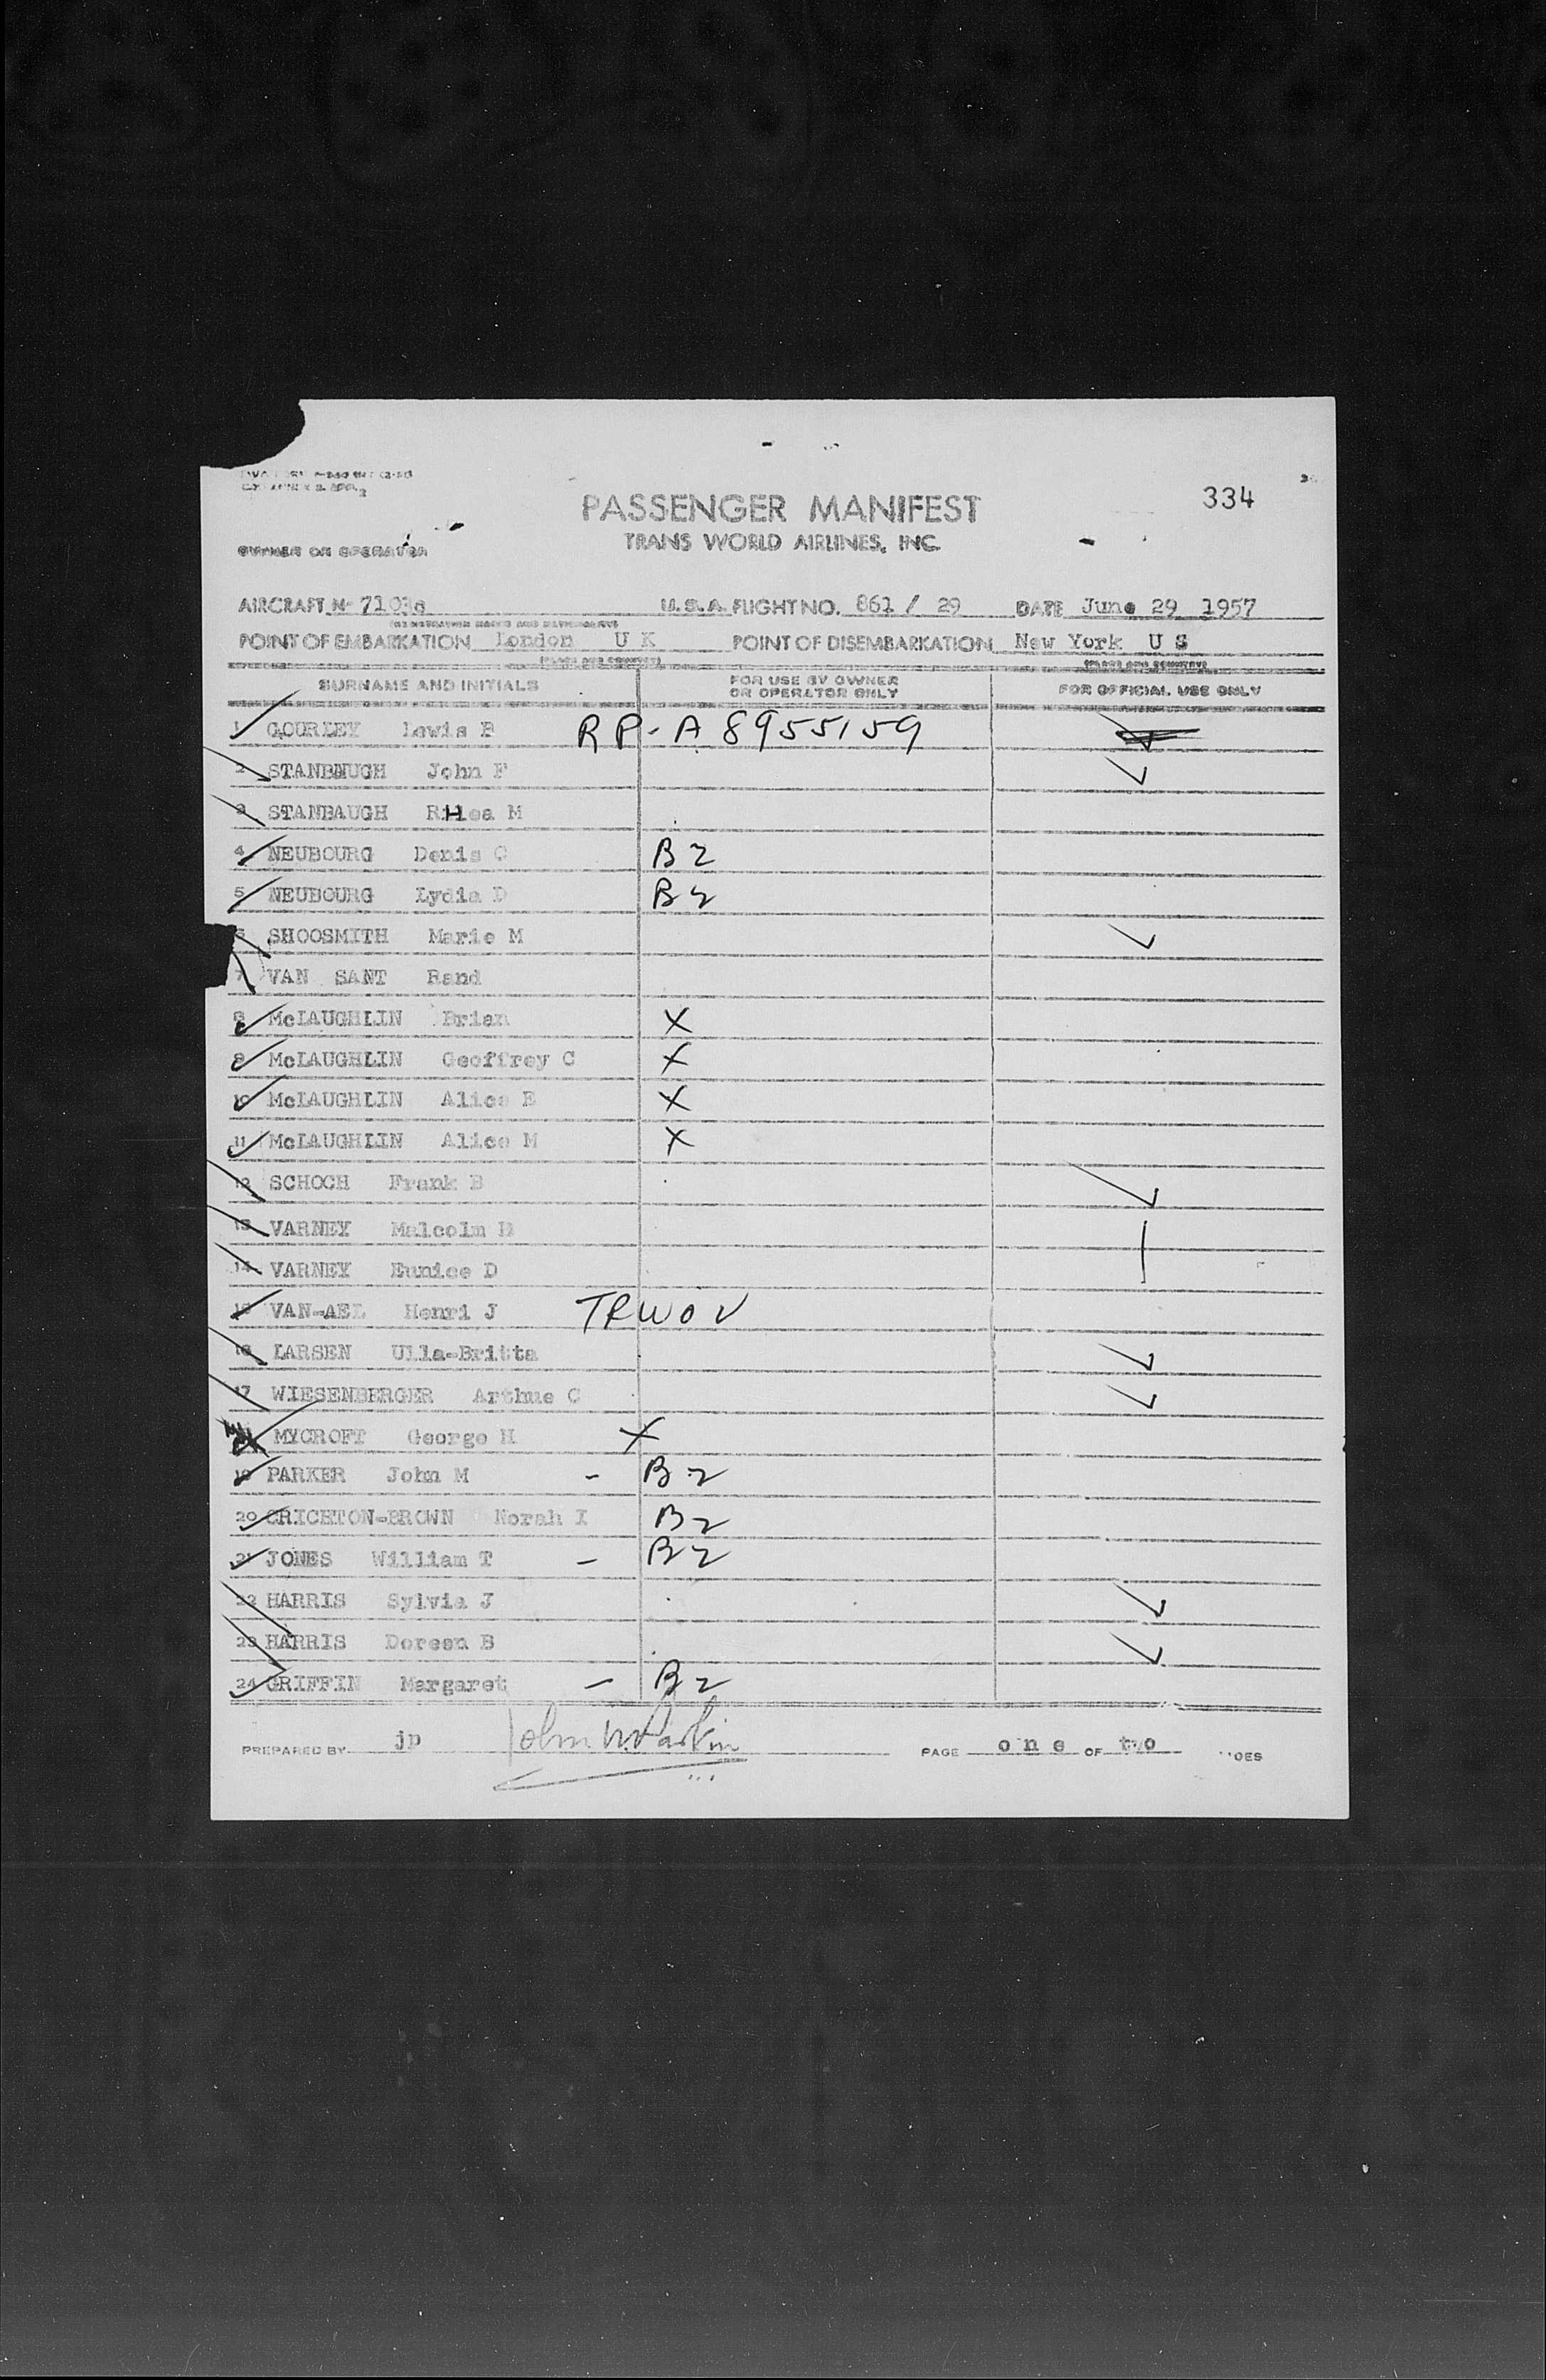 334
PASSENGER MANIFEST
TRANS WORLD AIRLINES, INC.
OWNER OR OPERATOR
AIRCRAFT No U.S.A. FLIGHT NO. 861 / 29 DATE June 29 1957
POINT OF EMBARKATION London U K POINT OF DISEMBARKATION New York U S
SURNAME AND INITIALS FOR USE BY OWNER OR OPERATOR ONLY FOR OFFICIAL USE ONLY
1 GOURLEY Lewis B RP-A 8955159
2 STANBMUGH John F
3 STANBAUGH RHea M
4 NEUBOURG Denis C B2
5 NEUBOURG Lydia D B2
6 SHOOSMITH Marie M
7 VAN SANT Rand
8 McLAUGHLIN Brian X
9 McLAUGHLIN Geoffrey C X
10 McLAUGHLIN Alice E X
11 McLAUGHLIN Alice M X
12 SCHOCH Frank B
13 VARNEY Malcolm H
14 VARNEY Eunice D
15 VAN-AEL Henri J TRWOV
16 LARSEN Ulla-Britta
17 WIESENBERGER Arthue C
MYCROFT George H X
19 PARKER John M - B2
20 CRICHTON-BROWN Norah I B2
21 JONES William T - B2
22 HARRIS Sylvia J
23 HARRIS Doreen B
24 GRIFFIN Margaret - B2
PREPARED BY jp PAGE one OF two